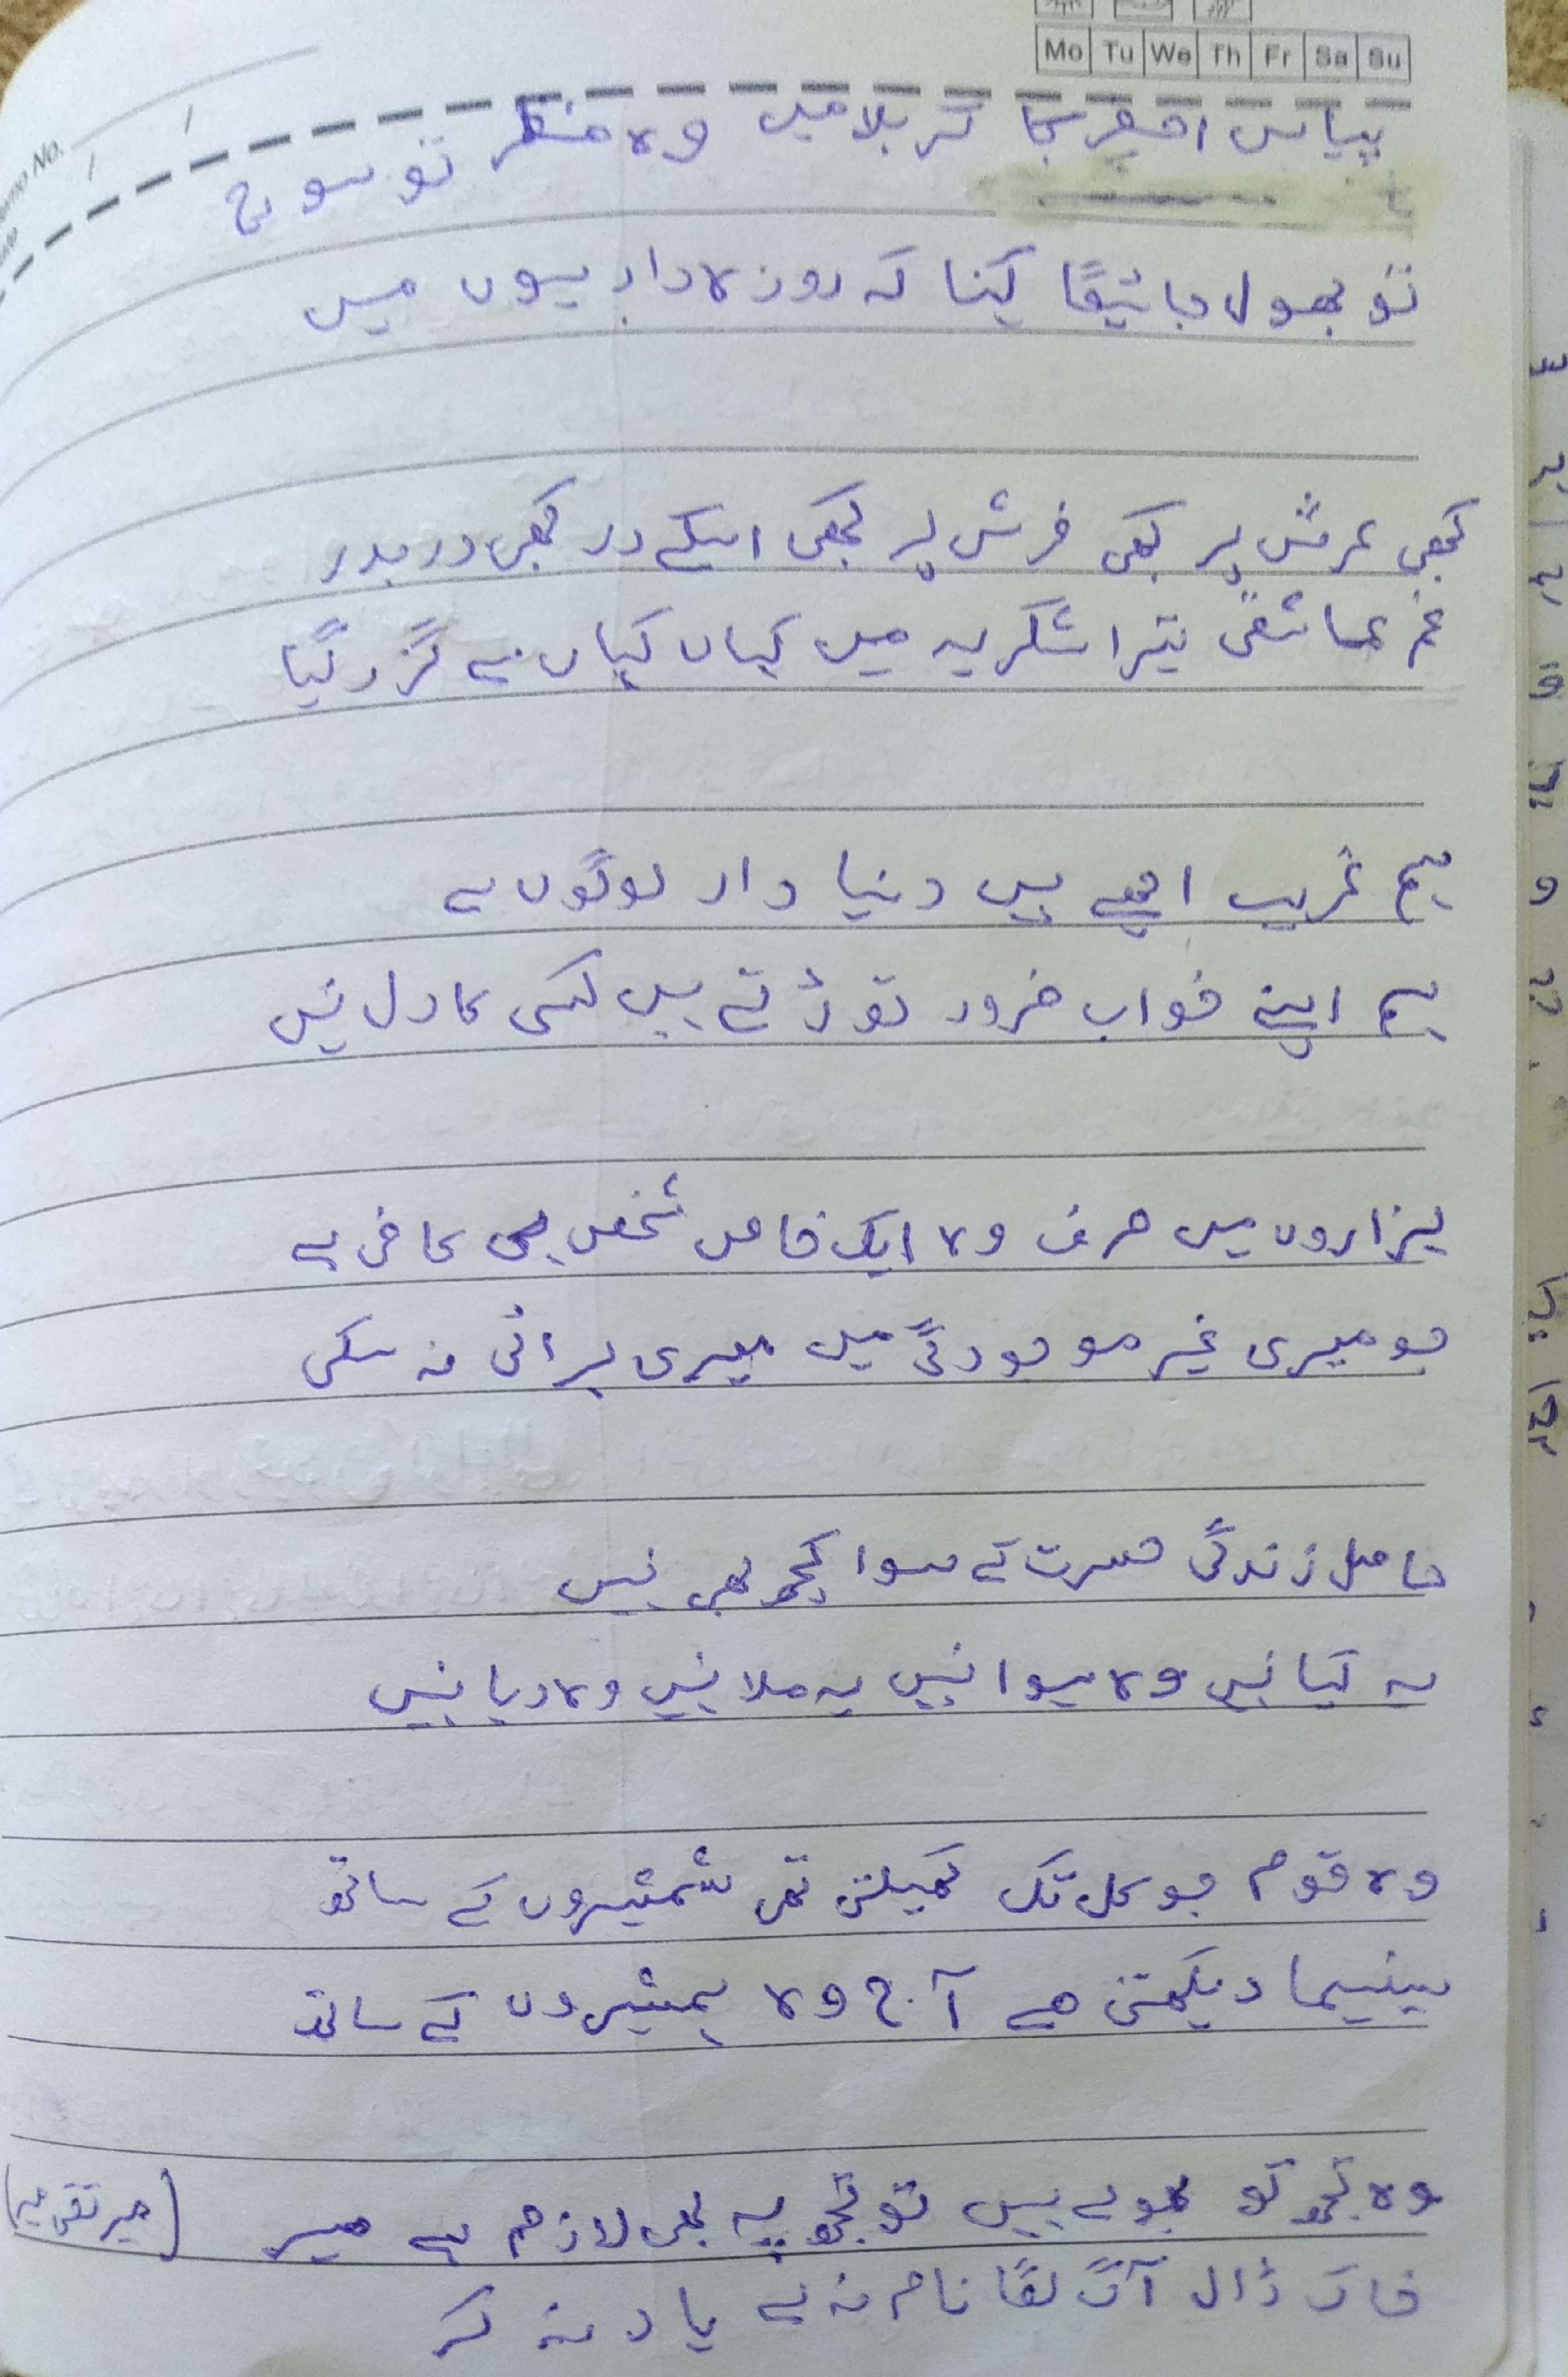 Mo Tu We Th Fr Sa Su
Memo No.
پیاس اصغر کا کربلا میں وہ منظر تو سوچ
تو بھول جائیگا کہنا کہ روزہ دار ہوں میں
کبھی عرش پر کبھی فرش پر کبھی اسکے در کبھی در بدر
غم عاشقی تیرا شکریہ میں کہاں کہاں سے گزر گیا
ہم غریب اچھے ہیں دنیا دار لوگوں سے
ہم اپنے خواب ضرور توڑتے ہیں کسی کا دل نہیں
ہزاروں میں صرف وہ ایک خاص شخص ہی کافی ہے
جو میری غیر موجودگی میں میری برائی نہ سکی
حاصل زندگی حسرت کے سوا کچھ بھی نہیں
یہ کیا نہیں وہ ہوا نہیں یہ ملا نہیں وہ دیا نہیں
وہ قوم جو کل تک کھیلتی تھی شمشیروں کے ساتھ
سینیما دیکھتی ہے آج وہ ہمشیروں کے ساتھ
وہ تجھ کو بھولے ہیں تو تجھ پہ بھی لازم ہے میر (میر تقی میر)
خاک ڈال آگ لگا نام نہ لے یاد نہ کر